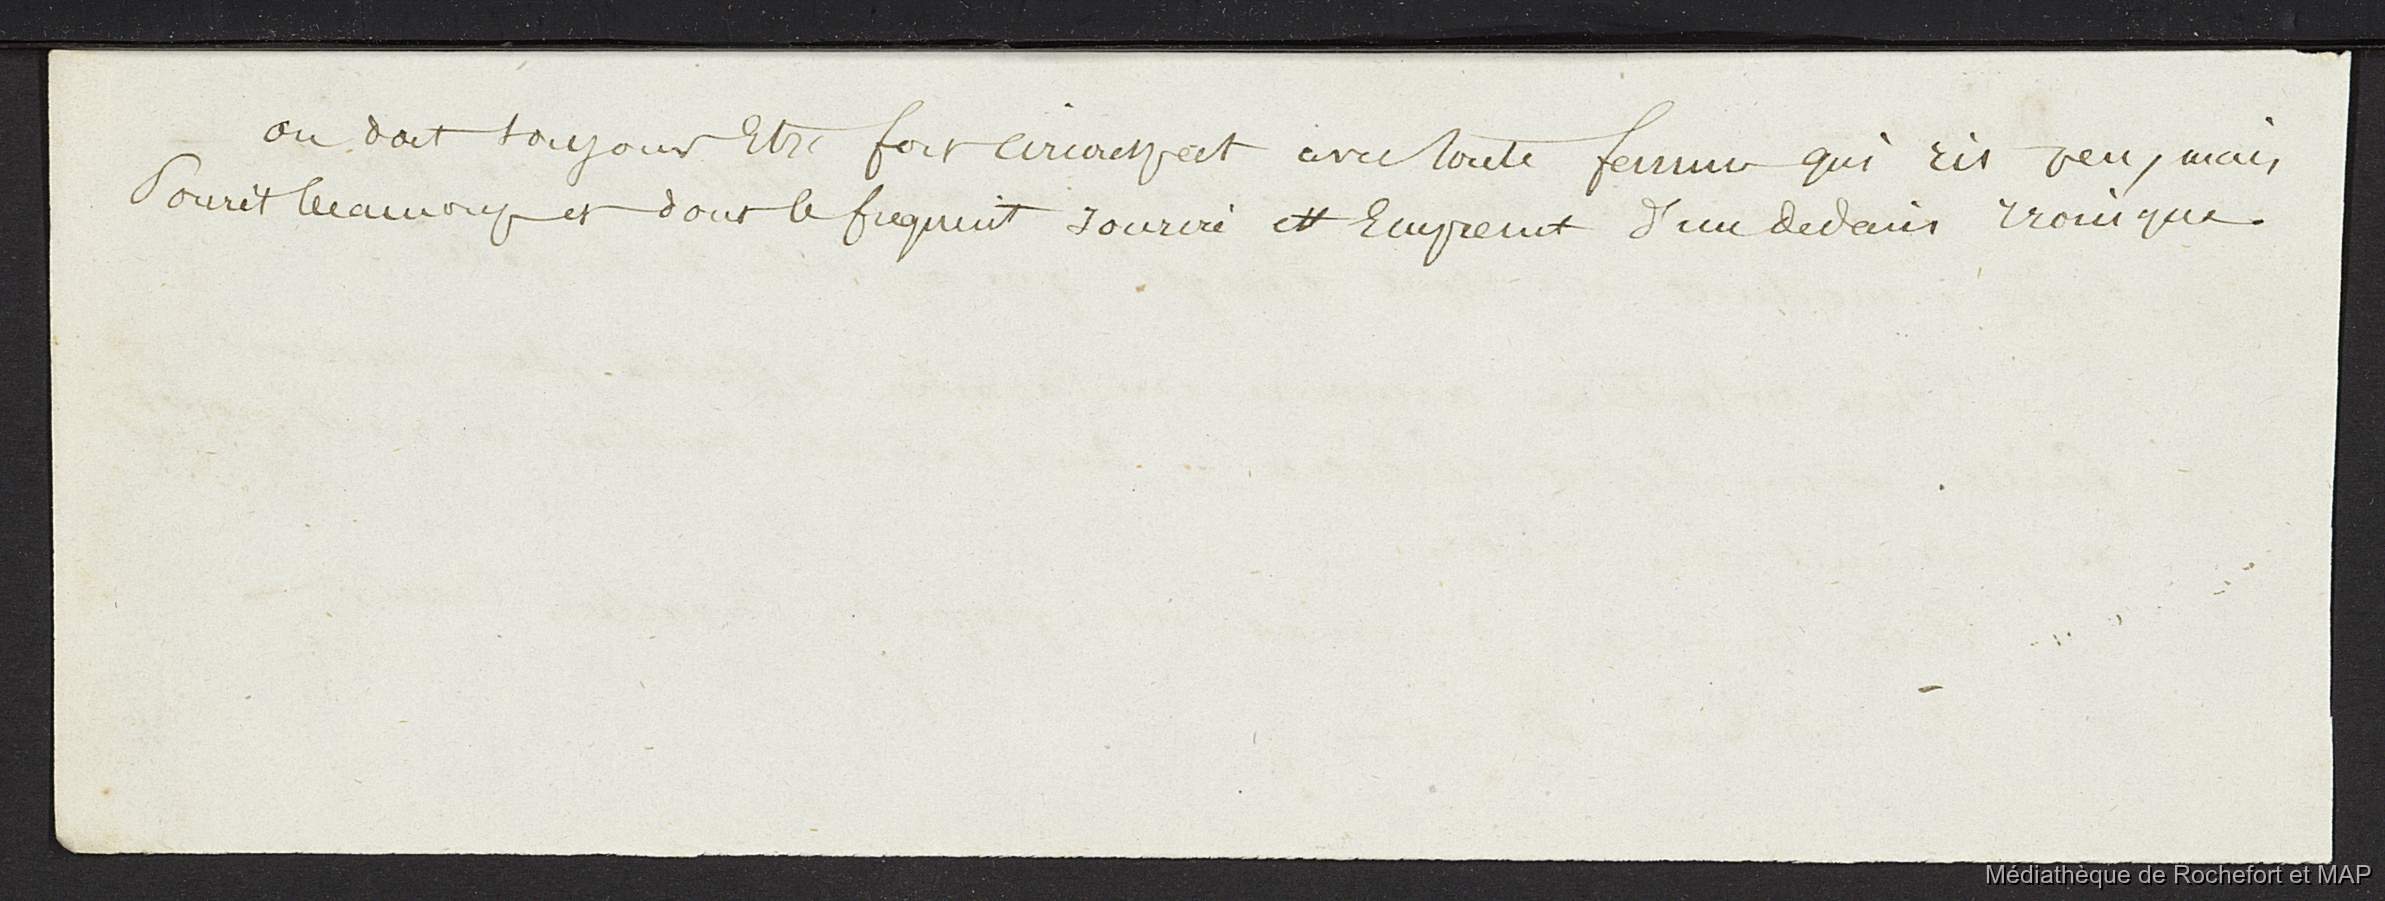 on doit toujours Etre fort circonspect avec toute femme qui rit peu, mais
Sourit beaucoup et dont le frequent sourire est Empreint d'un dedain ironique.
Médiathèque de Rochefort et MAP